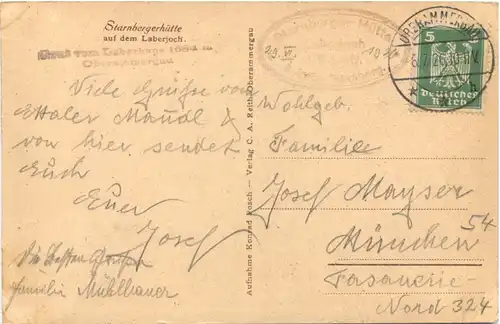 Starnbergerhütte
auf dem Laberjoch.
Gruß vom Laberhaus 1684 m
Oberammergau
Viele Grüsse vom
Ettaler Mandl &
von hier sendet
Euch
Euer
Josef
Die besten Grüße
Familie Mühlbauer
Aufnahme Konrad Bosch — Verlag C. A. Reith, Oberammergau
OBERAMMERGAU
5
Deutsches
Reich
Wohlgeb.
Familie
Josef Mayser
München 54
Fasanerie-
Nord 324